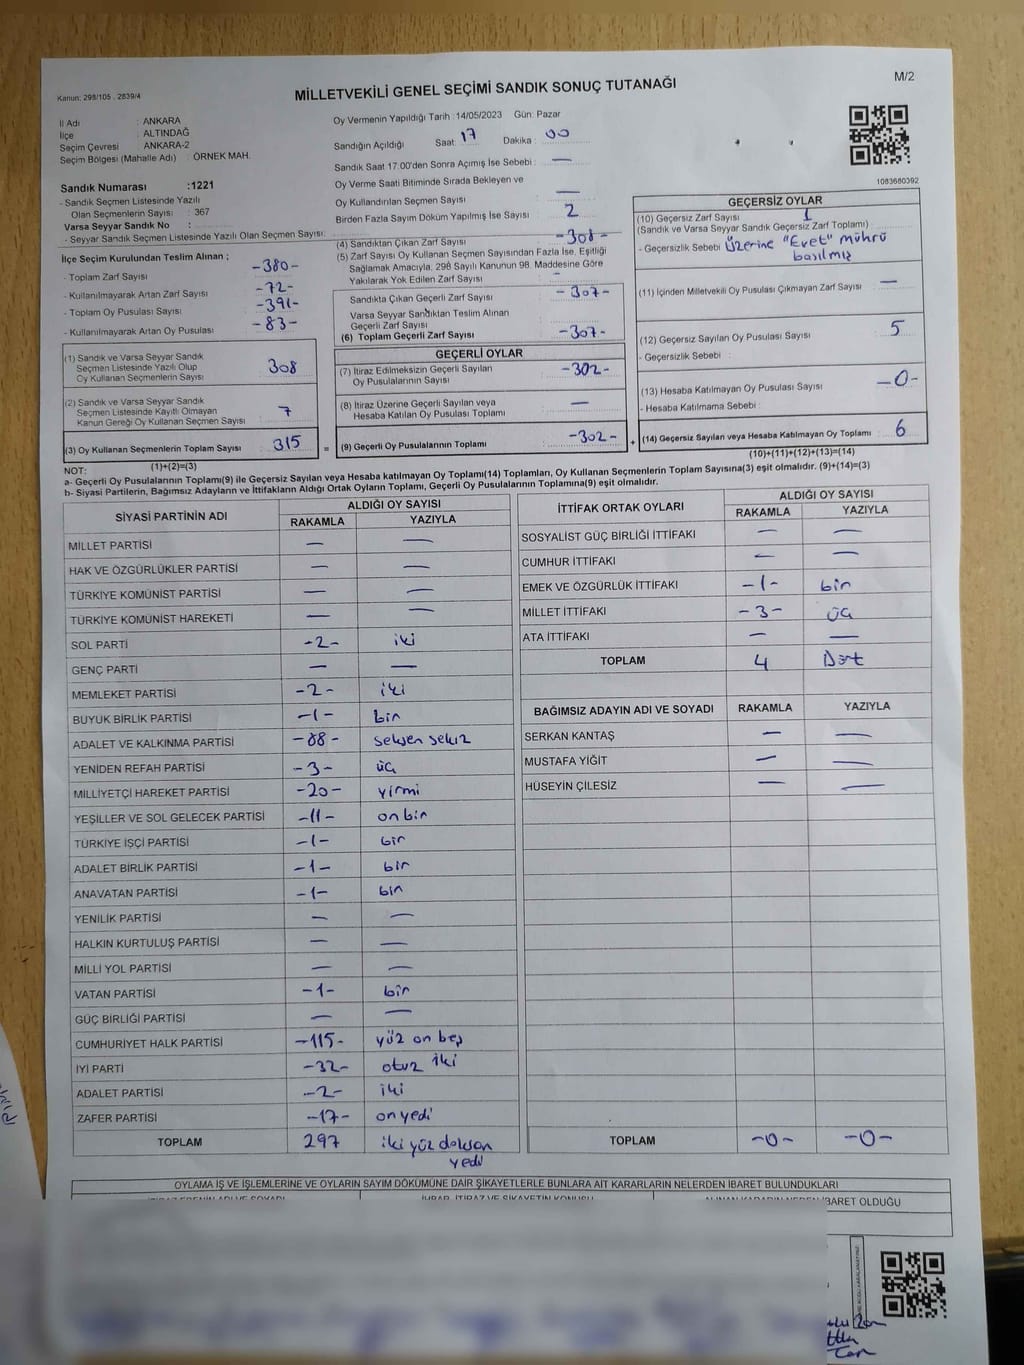 Kanun: 298/105 . 2839/4
MİLLETVEKİLİ GENEL SEÇİMİ SANDIK SONUÇ TUTANAĞI
M/2
İl Adı : ANKARA
İlçe : ALTINDAĞ
Seçim Çevresi : ANKARA-2
Seçim Bölgesi (Mahalle Adı) : ÖRNEK MAH.
Sandık Numarası :1221
- Sandık Seçmen Listesinde Yazılı
Olan Seçmenlerin Sayısı : 367
Varsa Seyyar Sandık No :
- Seyyar Sandık Seçmen Listesinde Yazılı Olan Seçmen Sayısı:
Oy Vermenin Yapıldığı Tarih :14/05/2023 Gün: Pazar
Sandığın Açıldığı Saat: 17 Dakika : 00
Sandık Saat 17:00'den Sonra Açımış İse Sebebi : —
Oy Verme Saati Bitiminde Sırada Bekleyen ve
Oy Kullandırılan Seçmen Sayısı —
Birden Fazla Sayım Döküm Yapılmış İse Sayısı 2
1083680392
İlçe Seçim Kurulundan Teslim Alınan ;
- Toplam Zarf Sayısı -380-
- Kullanılmayarak Artan Zarf Sayısı -72-
- Toplam Oy Pusulası Sayısı -391-
- Kullanılmayarak Artan Oy Pusulası -83-
(1) Sandık ve Varsa Seyyar Sandık
Seçmen Listesinde Yazılı Olup
Oy Kullanan Seçmenlerin Sayısı 308
(2) Sandık ve Varsa Seyyar Sandık
Seçmen Listesinde Kayıtlı Olmayan
Kanun Gereği Oy Kullanan Seçmen Sayısı 7
(3) Oy Kullanan Seçmenlerin Toplam Sayısı 315
(1)+(2)=(3)
(4) Sandıktan Çıkan Zarf Sayısı -308-
(5) Zarf Sayısı Oy Kullanan Seçmen Sayısından Fazla İse, Eşitliği
Sağlamak Amacıyla, 298 Sayılı Kanunun 98. Maddesine Göre
Yakılarak Yok Edilen Zarf Sayısı : -
Sandıkta Çıkan Geçerli Zarf Sayısı -307-
Varsa Seyyar Sandıktan Teslim Alınan
Geçerli Zarf Sayısı
(6) Toplam Geçerli Zarf Sayısı -307-
GEÇERLİ OYLAR
(7) İtiraz Edilmeksizin Geçerli Sayılan
Oy Pusulasının Sayısı -302-
(8) İtiraz Üzerine Geçerli Sayılan veya
Hesaba Katılan Oy Pusulası Toplamı —
= (9) Geçerli Oy Pusulalarının Toplamı -302- +
GEÇERSİZ OYLAR
(10) Geçersiz Zarf Sayısı 1
(Sandık ve Varsa Seyyar Sandık Geçersiz Zarf Toplamı)
- Geçersizlik Sebebi Üzerine "Evet" mührü
basılmış
(11) İçinden Milletvekili Oy Pusulası Çıkmayan Zarf Sayısı —
(12) Geçersiz Sayılan Oy Pusulası Sayısı 5
- Geçersizlik Sebebi :
(13) Hesaba Katılmayan Oy Pusulası Sayısı -0-
- Hesaba Katılmama Sebebi :
(14) Geçersiz Sayılan veya Hesaba Katılmayan Oy Toplamı 6
(10)+(11)+(12)+(13)=(14)
NOT:
a- Geçerli Oy Pusulalarının Toplamı(9) ile Geçersiz Sayılan veya Hesaba katılmayan Oy Toplamı(14) Toplamları, Oy Kullanan Seçmenlerin Toplam Sayısına(3) eşit olmalıdır. (9)+(14)=(3)
b- Siyasi Partilerin, Bağımsız Adayların ve İttifakların Aldığı Ortak Oyların Toplamı, Geçerli Oy Pusulalarının Toplamına(9) eşit olmalıdır.
SİYASİ PARTİNİN ADI ALDIĞI OY SAYISI
RAKAMLA YAZIYLA
MİLLET PARTİSİ — —
HAK VE ÖZGÜRLÜKLER PARTİSİ — —
TÜRKİYE KOMÜNİST PARTİSİ — —
TÜRKİYE KOMÜNİST HAREKETİ — —
SOL PARTİ -2- iki
GENÇ PARTİ — —
MEMLEKET PARTİSİ -2- iki
BÜYÜK BİRLİK PARTİSİ -1- bir
ADALET VE KALKINMA PARTİSİ -88- seksen sekiz
YENİDEN REFAH PARTİSİ -3- üç
MİLLİYETÇİ HAREKET PARTİSİ -20- yirmi
YEŞİLLER VE SOL GELECEK PARTİSİ -11- on bir
TÜRKİYE İŞÇİ PARTİSİ -1- bir
ADALET BİRLİK PARTİSİ -1- bir
ANAVATAN PARTİSİ -1- bir
YENİLİK PARTİSİ — —
HALKIN KURTULUŞ PARTİSİ — —
MİLLİ YOL PARTİSİ — —
VATAN PARTİSİ -1- bir
GÜÇ BİRLİĞİ PARTİSİ — —
CUMHURİYET HALK PARTİSİ -115- yüz on beş
İYİ PARTİ -32- otuz iki
ADALET PARTİSİ -2- iki
ZAFER PARTİSİ -17- on yedi
TOPLAM 297 iki yüz doksan
yedi
İTTİFAK ORTAK OYLARI ALDIĞI OY SAYISI
RAKAMLA YAZIYLA
SOSYALİST GÜÇ BİRLİĞİ İTTİFAKI — —
CUMHUR İTTİFAKI — —
EMEK VE ÖZGÜRLÜK İTTİFAKI -1- bir
MİLLET İTTİFAKI -3- üç
ATA İTTİFAKI — —
TOPLAM 4 Dört
BAĞIMSIZ ADAYIN ADI VE SOYADI RAKAMLA YAZIYLA
SERKAN KANTAŞ — —
MUSTAFA YİĞİT — —
HÜSEYİN ÇİLESİZ — —
TOPLAM -0- -0-
OYLAMA İŞ VE İŞLEMLERİNE VE OYLARIN SAYIM DÖKÜMÜNE DAİR ŞİKAYETLERLE BUNLARA AİT KARARLARIN NELERDEN İBARET BULUNDUKLARI
İBARET OLDUĞU